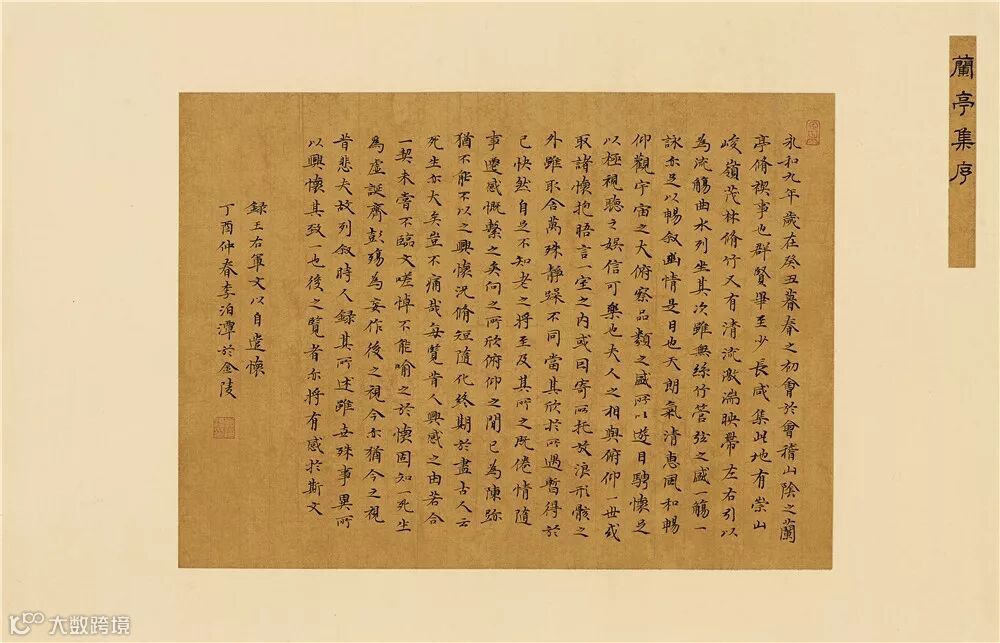 蘭亭集序
永和九年歲在癸丑暮春之初會於會稽山陰之蘭
亭脩禊事也群賢畢至少長咸集此地有崇山
峻嶺茂林脩竹又有清流激湍映帶左右引以
為流觴曲水列坐其次雖無絲竹管弦之盛一觴一
詠亦足以暢叙幽情是日也天朗氣清惠風和暢
仰觀宇宙之大俯察品類之盛所以遊目騁懷足
以極視聽之娛信可樂也夫人之相與俯仰一世或
取諸懷抱晤言一室之內或因寄所托放浪形骸之
外雖取舍萬殊靜躁不同當其欣於所遇暫得於
己快然自足不知老之將至及其所之既倦情隨
事遷感慨繫之矣向之所欣俯仰之間已為陳跡
猶不能不以之興懷況脩短隨化終期於盡古人云
死生亦大矣豈不痛哉每覽昔人興感之由若合
一契未嘗不臨文嗟悼不能喻之於懷固知一死生
為虛誕齊彭殤為妄作後之視今亦猶今之視
昔悲夫故列叙時人錄其所述雖世殊事異所
以興懷其致一也後之覽者亦將有感於斯文
錄王右軍文以自遣懷
丁酉仲春李泊潭於金陵
大数跨境